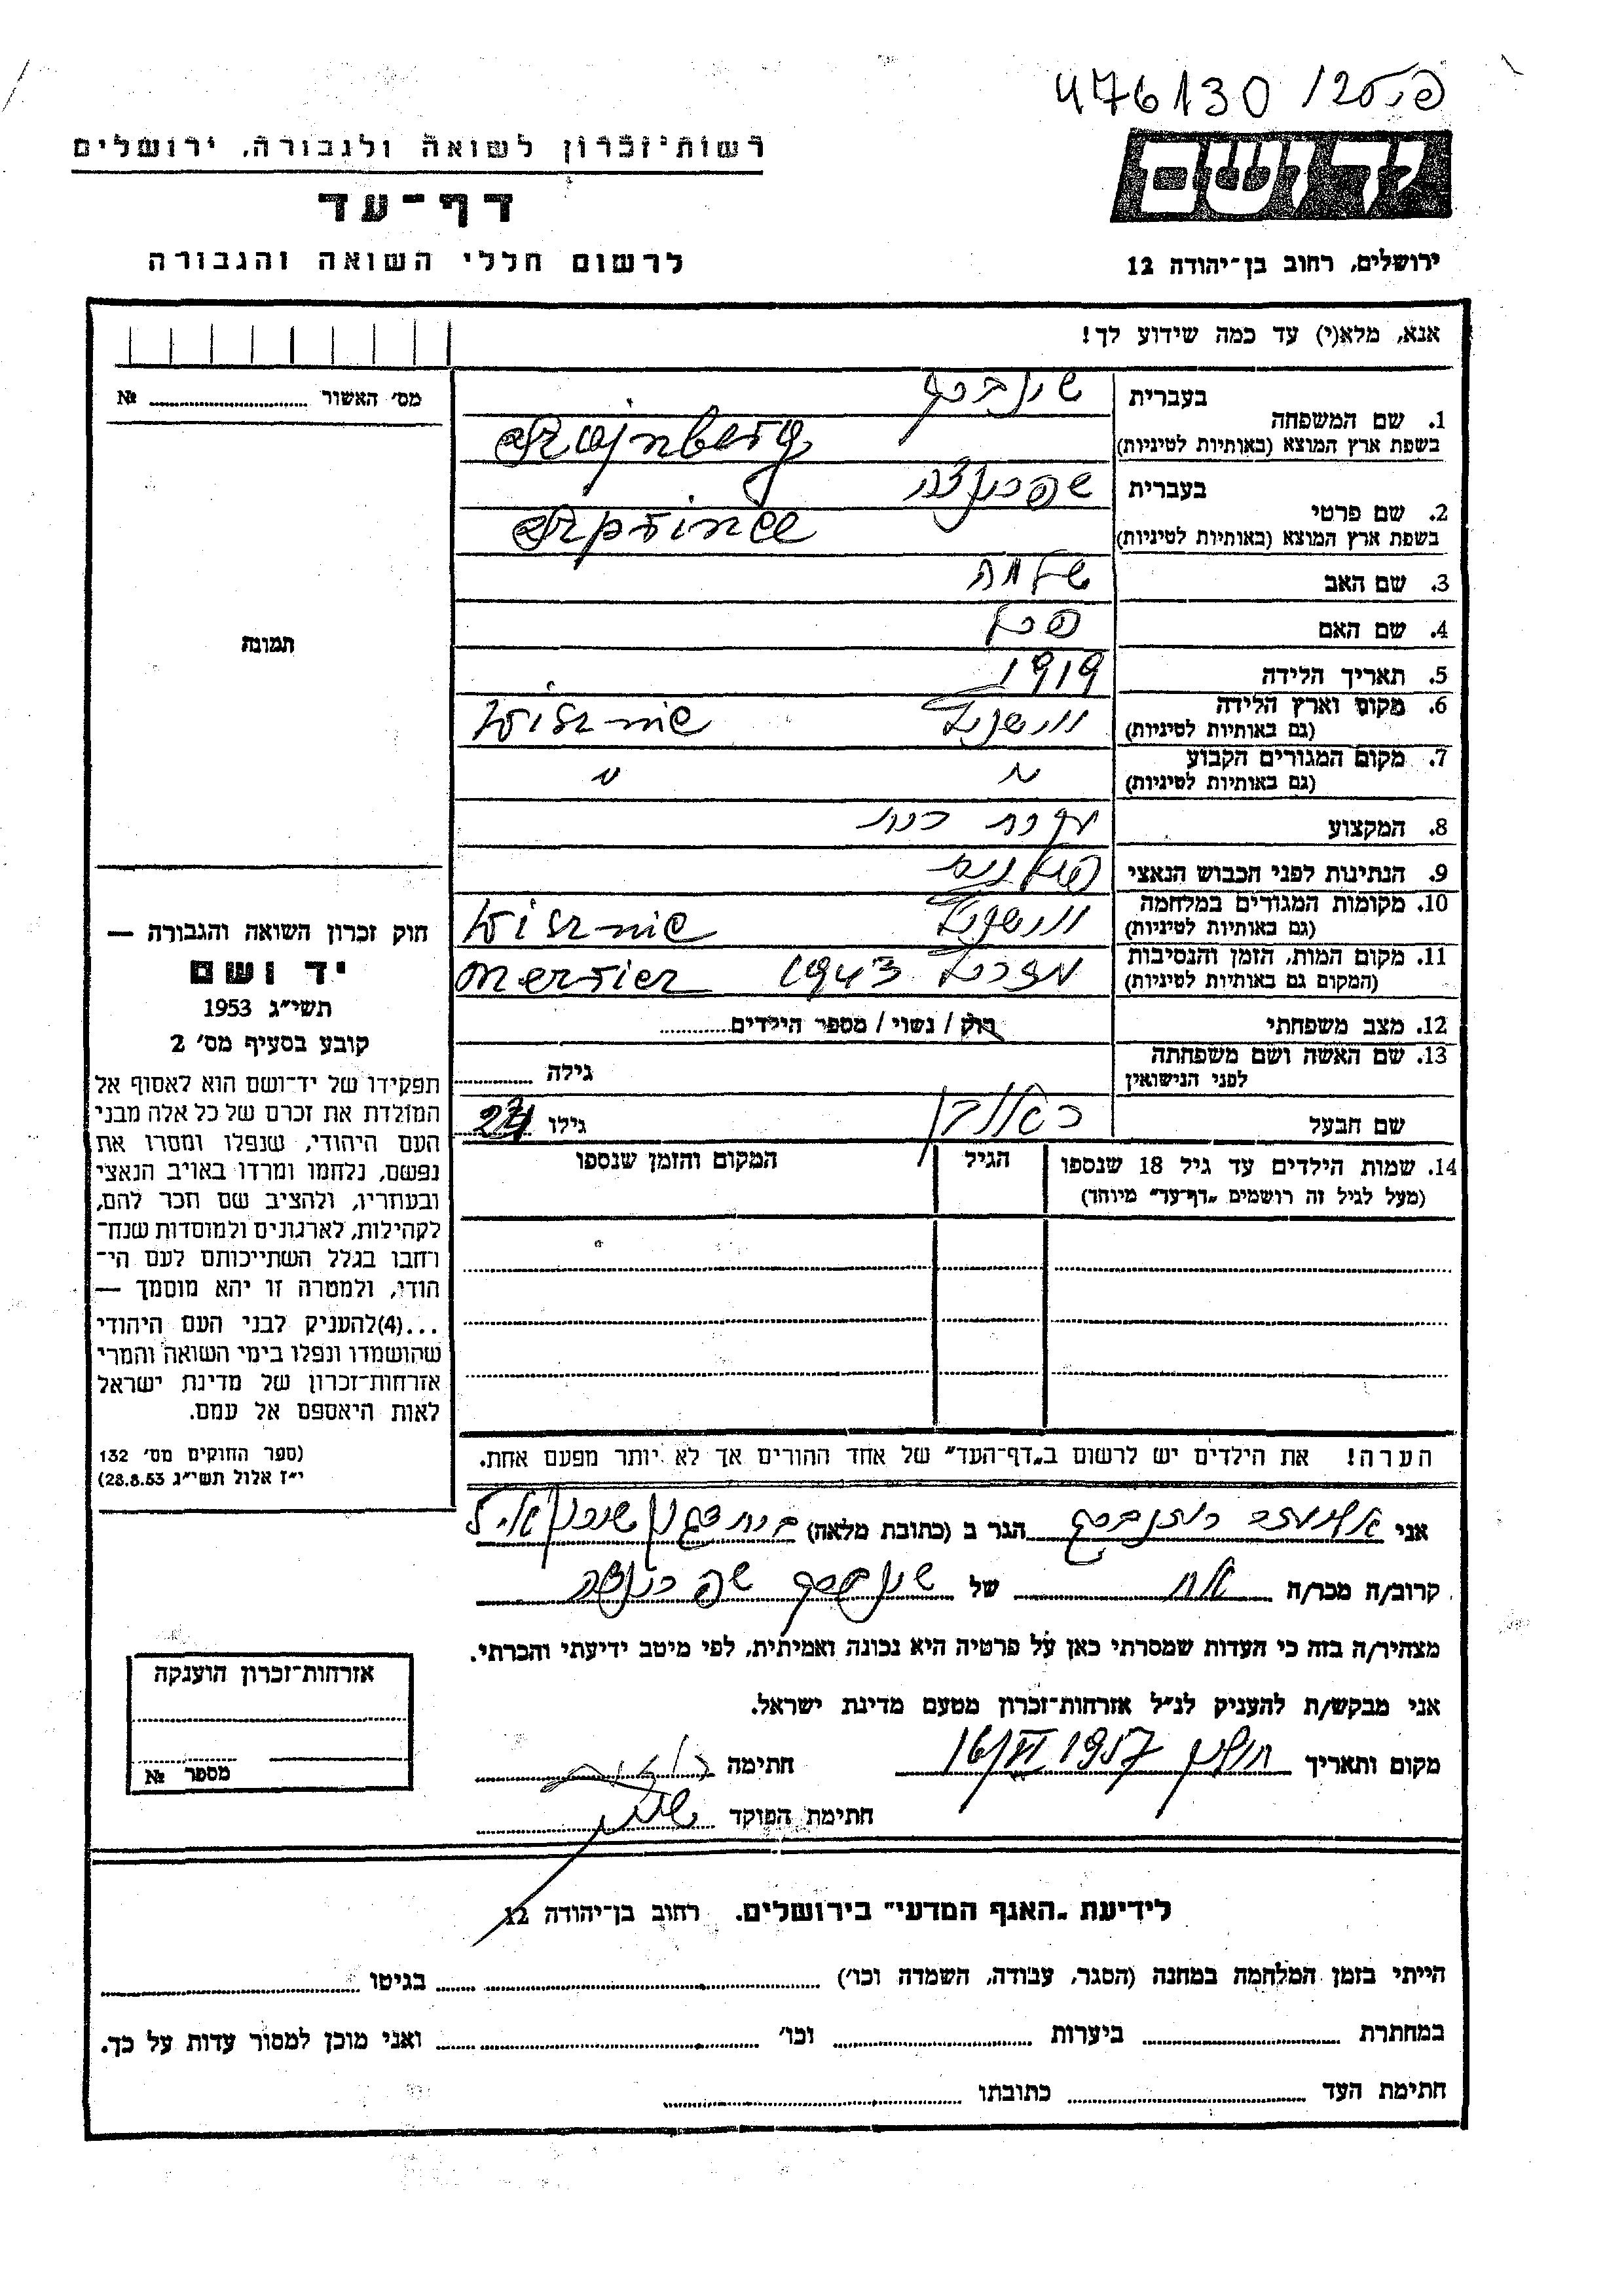 476130 /
יד ושם
רשות־זכרון לשואה ולגבורה, ירושלים
דף־עד
לרשום חללי השואה והגבורה
ירושלים, רחוב בן־יהודה 12
אנא, מלא(י) עד כמה שידוע לך!
מס׳ האשור № 
תמונה
חוק זכרון השואה והגבורה —
יד ושם
תשי״ג 1953
קובע בסעיף מס׳ 2
תפקידו של יד־ושם הוא לאסוף אל
המולדת את זכרם של כל אלה מבני
העם היהודי, שנפלו ומסרו את
נפשם, נלחמו ומרדו באויב הנאצי
ובעוזריו, ולהציב שם וזכר להם,
לקהילות, לארגונים ולמוסדות שנח־
רחבו בגלל השתייכותם לעם הי־
הודי, ולמטרה זו יהא מוסמך —
...(4)להעניק לבני העם היהודי
שהושמדו ונפלו בימי השואה והמרי
אזרחות־זכרון של מדינת ישראל
לאות היאספם אל עמם.
(ספר החוקים מס׳ 132
י״ז אלול תשי״ג 28.8.53)
1. שם המשפחה בעברית שינברג
בשפת ארץ המוצא (באותיות לטיניות)
2. שם פרטי בעברית שפרינצה
בשפת ארץ המוצא (באותיות לטיניות)
3. שם האב שלמה
4. שם האם פרל
5. תאריך הלידה 1919
6. מקום וארץ הלידה
(גם באותיות לטיניות)
7. מקום המגורים הקבוע
(גם באותיות לטיניות) " "
8. המקצוע עקרת בית
9. הנתינות לפני הכבוש הנאצי פולנית
10. מקומות המגורים במלחמה
(גם באותיות לטיניות)
11. מקום המות, הזמן והנסיבות 1943
(המקום גם באותיות לטיניות)
12. מצב משפחתי רוק / נשוי / מספר הילדים
13. שם האשה ושם משפחתה
לפני הנישואין גילה
שם הבעל ראובן גילו
14. שמות הילדים עד גיל 18 שנספו הגיל המקום והזמן שנספו
(מעל לגיל זה רושמים „דף־עד״ מיוחד)
הערה! את הילדים יש לרשום ב„דף־העד״ של אחד ההורים אך לא יותר מפעם אחת.
אני רוזנברג הגר ב (כתובת מלאה) בית דגון שיכון
קרוב/ה מכר/ה אח של שינברג שפרינצה
מצהיר/ה בזה כי העדות שמסרתי כאן על פרטיה היא נכונה ואמיתית, לפי מיטב ידיעתי והכרתי.
אני מבקש/ת להעניק לנ״ל אזרחות־זכרון מטעם מדינת ישראל.
מקום ותאריך חולון 16/VI 1957 חתימה
חתימת הפוקד
אזרחות־זכרון הוענקה
מספר №
לידיעת „האגף המדעי״ בירושלים. רחוב בן־יהודה 12
הייתי בזמן המלחמה במחנה (הסגר, עבודה, השמדה וכו׳) בגיטו
במחתרת ביערות וכו׳ ואני מוכן למסור עדות על כך.
חתימת העד כתובתו